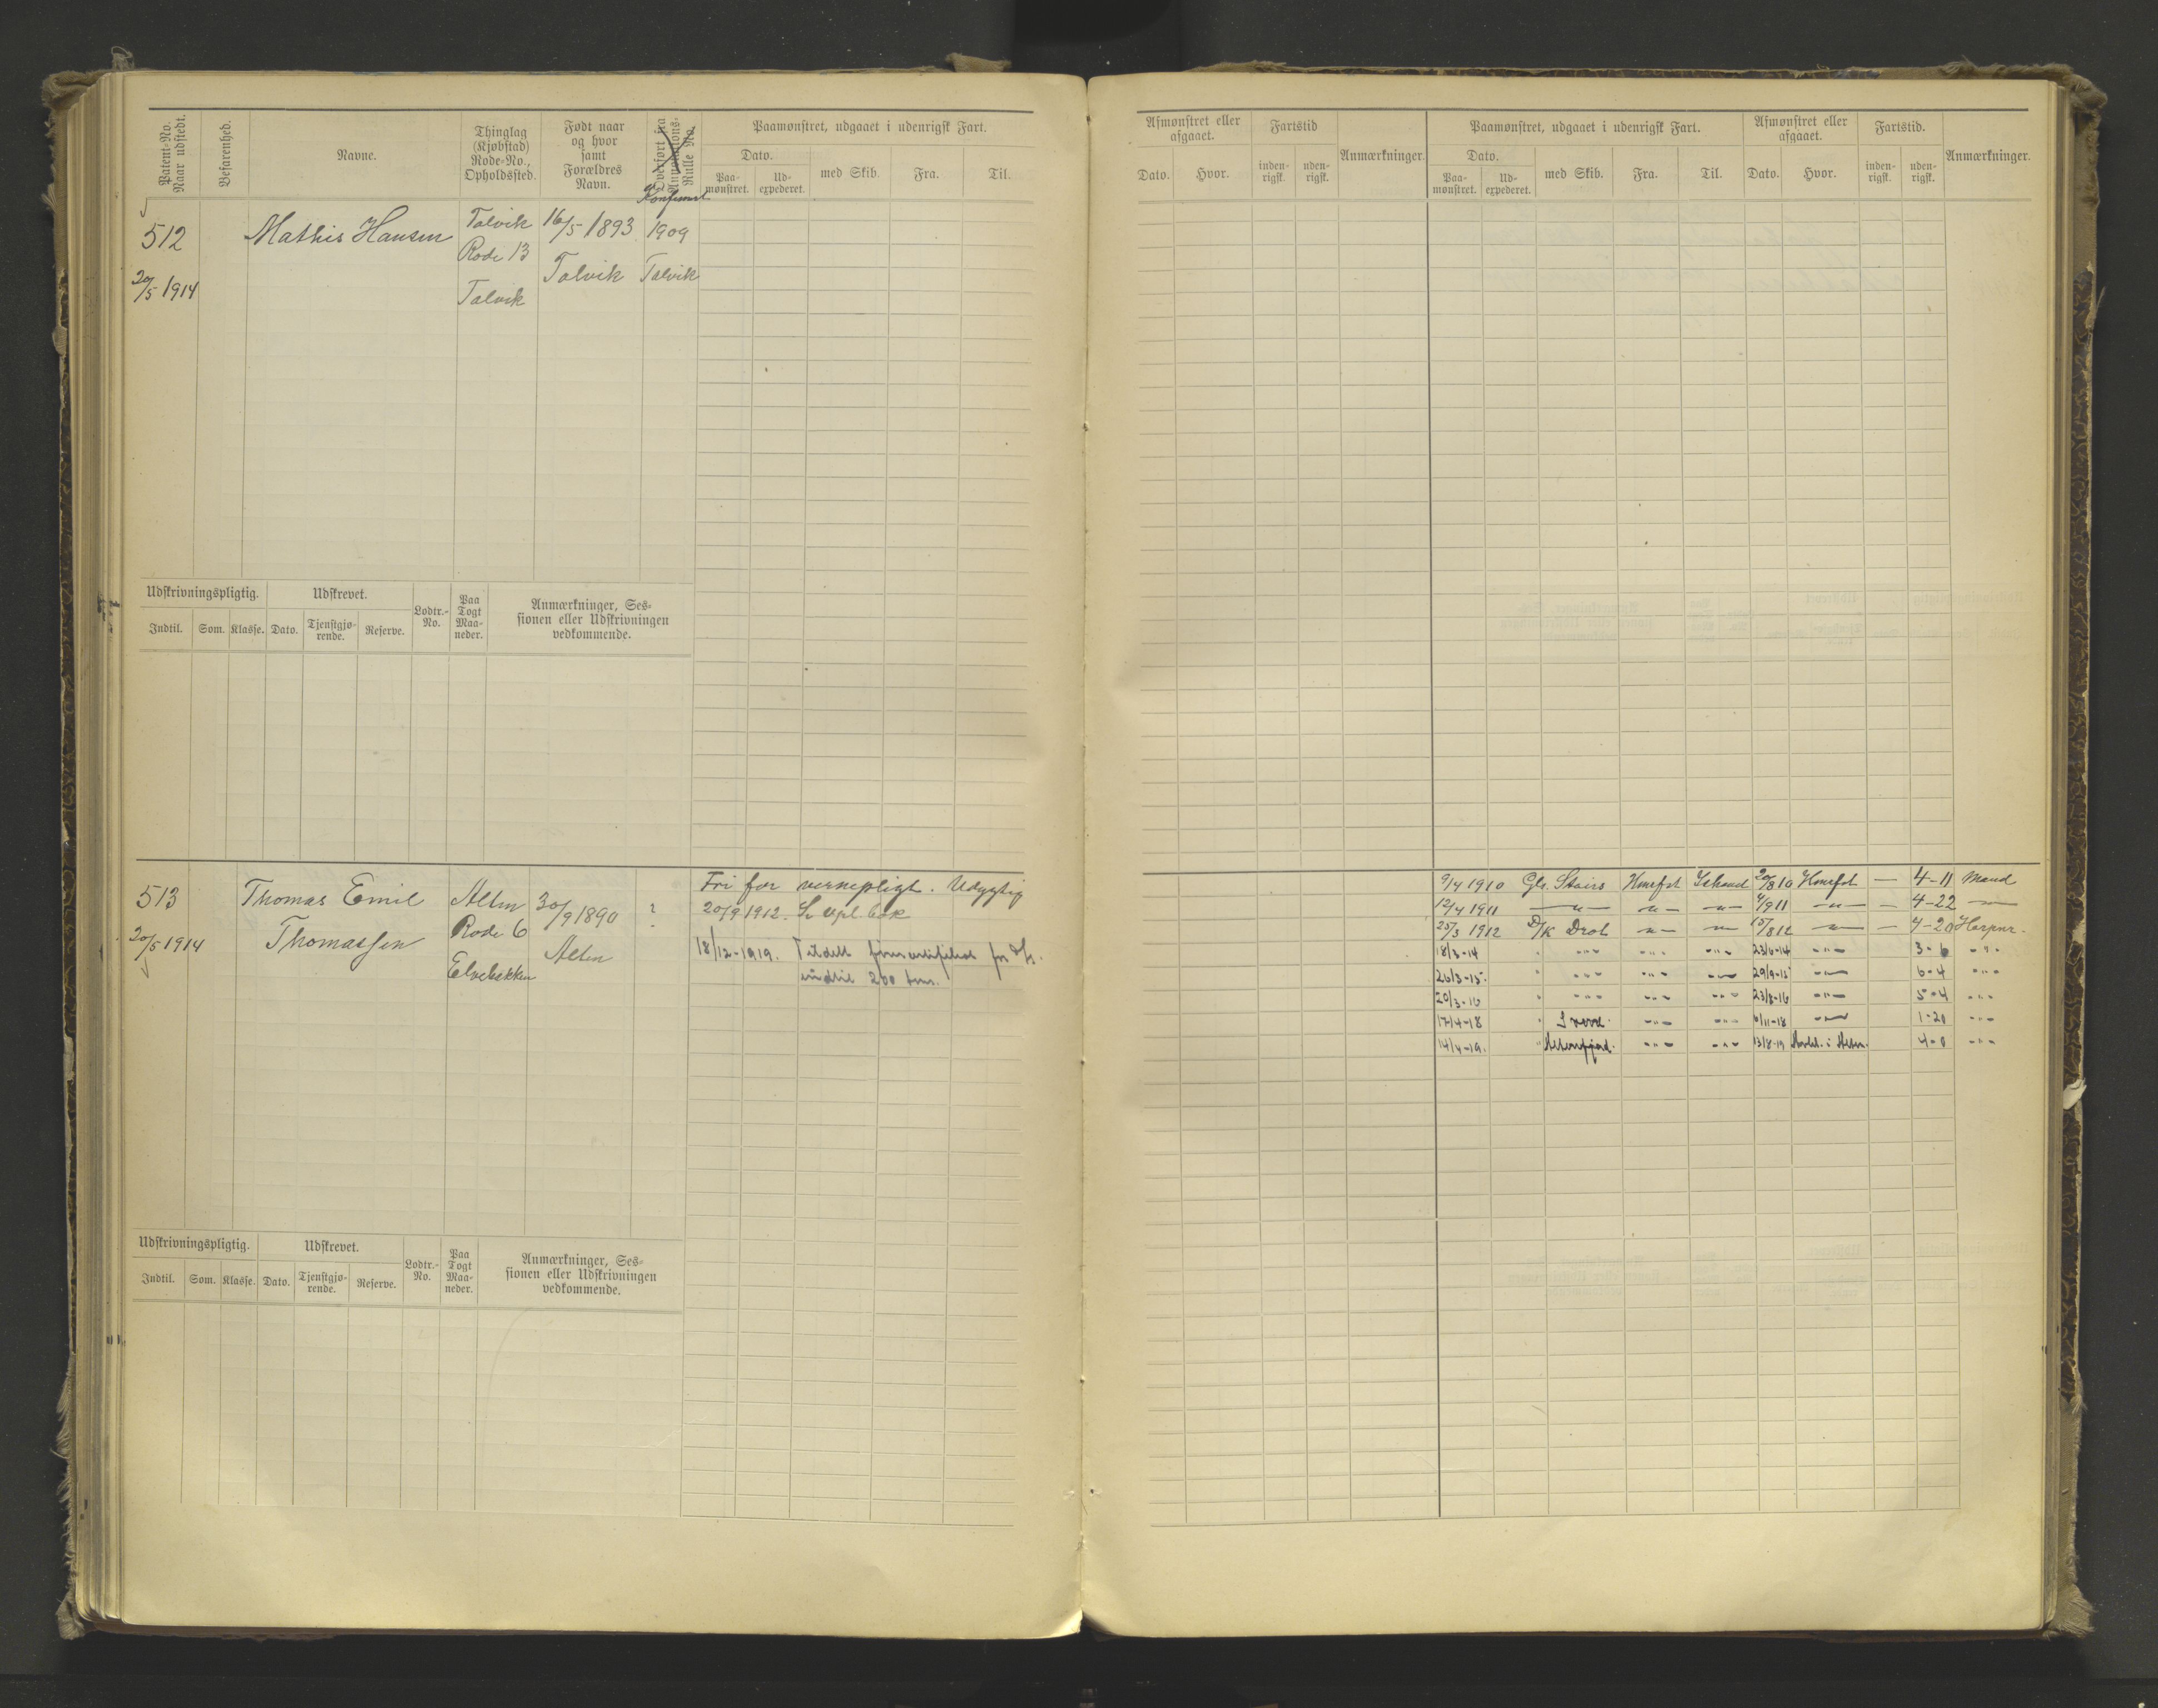 Patent-No. Naar udstedt.
Befarenhed.
Navne.
Thinglag (Kjøbstad) Rode-No., Opholdssted.
Født naar og hvor samt Forældres Navn.
Overført fra Annotations-Rulle No.
Konfirmert
Paamønstret, udgaaet i udenrigsk Fart.
Dato.
Paa-mønstret.
Ud-expederet.
med Skib.
Fra.
Til.
512
20/5 1914
Mathis Hansen
Talvik
Rode 13
Talvik
16/5 1893
Talvik
1909
Talvik
Udskrivningspligtig.
Udskrevet.
Lodtr.-No.
Paa Togt Maa-neder.
Anmærkninger, Ses-sionen eller Udskrivningen vedkommende.
Indtil.
Som.
Klasse.
Dato.
Tjenstgjø-rende.
Reserve.
513
20/5 1914
Thomas Emil
Thomassen
Alten
Rode 6
Elvebakken
30/9 1890
Alten
?
Fri for vernepligt. Udygtig
20/9 1912. Se vpl. bok
18/12-1919. Tildelt
indtil 200 tons.
Udskrivningspligtig.
Udskrevet.
Lodtr.-No.
Paa Togt Maa-neder.
Anmærkninger, Ses-sionen eller Udskrivningen vedkommende.
Indtil.
Som.
Klasse.
Dato.
Tjenstgjø-rende.
Reserve.
Afmønstret eller afgaaet.
Fartstid
Anmærkninger.
Paamønstret, udgaaet i udenrigsk Fart.
Afmønstret eller afgaaet.
Fartstid.
Anmærkninger.
Dato.
Hvor.
inden-rigsk.
uden-rigsk.
Dato.
Paa-mønstret.
Ud-expederet.
med Skib.
Fra.
Til.
Dato.
Hvor.
inden-rigsk.
uden-rigsk.
9/4 1910 Stairs Hmrfst Ishavd 20/8 10 Hmrfst — 4-11 Mand
12/4 1911 —"— —"— —"— 4/9 11 —"— — 4-22 —"—
25/3 1912 D/K Drot —"— —"— 15/8 12 —"— — 4-20 Harpnr.
18/3-14 " -"- -"- -"- 23/6-14 -"- 3-6 -"-
26/3-15. " -"- -"- -"- 29/9-15 -"- 6-4 -"-
20/3-16 " -"- -"- -"- 23/8-16 -"- 5-4 -"-
17/4-18 " -"- -"- 6/11-18 -"- 1-20 -"-
14/4-19. " Altenfjord. -"- -"- 13/8-19 i Alten. 4-0 -"-